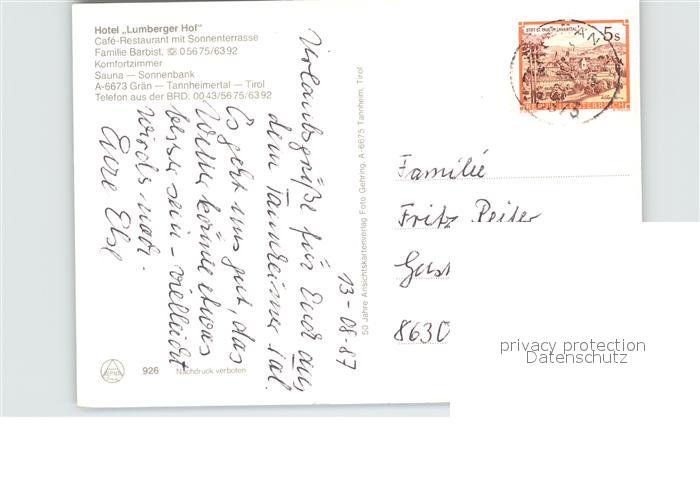 Hotel „Lumberger Hof"
Café-Restaurant mit Sonnenterrasse
Familie Barbist, ☎ 05675/6392
Komfortzimmer
Sauna — Sonnenbank
A-6673 Grän — Tannheimertal — Tirol
Telefon aus der BRD: 0043/5675/6392
Urlaubsgrüße für Euch aus
dem Tannheimer Tal.
Es geht uns gut, das
Wetter könnte etwas
besser sein – vielleicht
wirds noch.
Eure Else
13-08-87
50 Jahre Ansichtskartenverlag Foto Gehring, A-6675 Tannheim, Tirol
926 Nachdruck verboten
STIFT ST. PAUL IM LAVANTTAL
5s
REPUBLIK ÖSTERREICH
Familie
Fritz
8630
privacy protection
Datenschutz